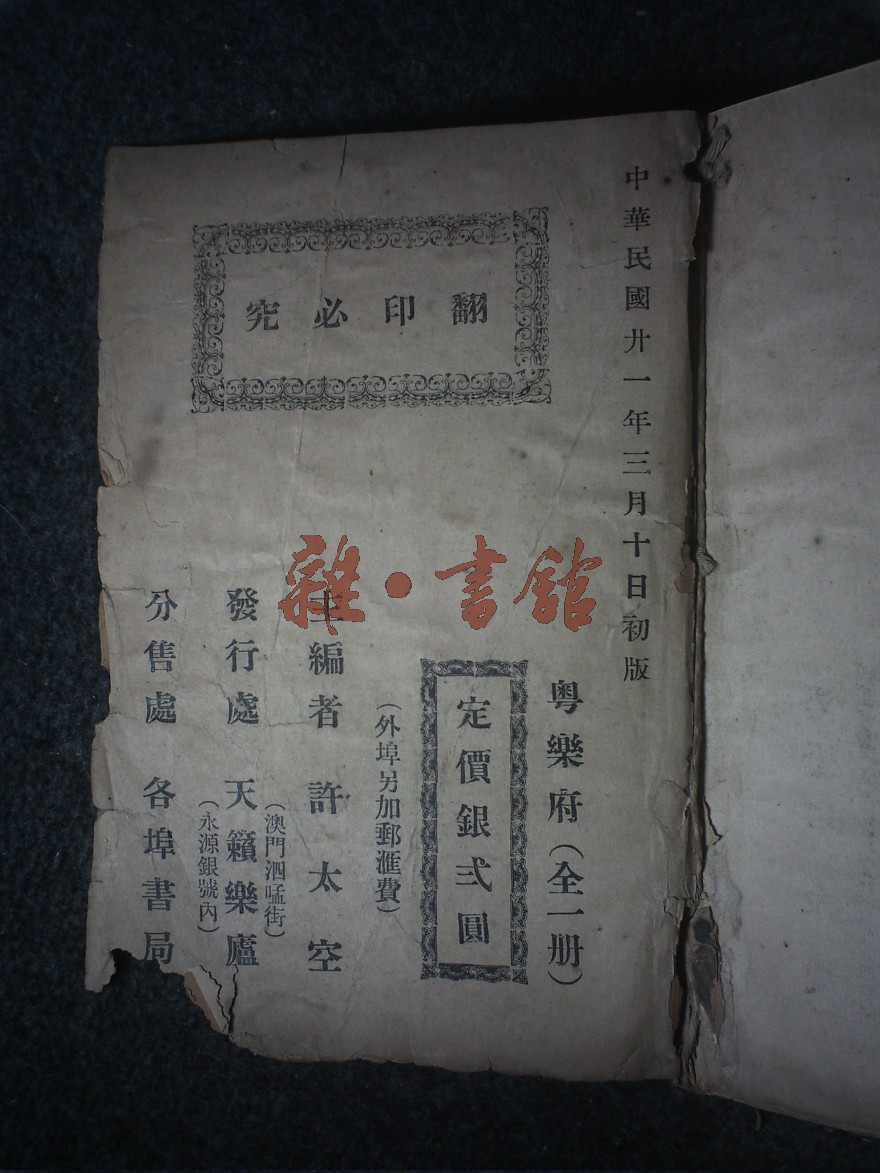 中華民國廿一年三月十日初版
翻印必究
粤樂府（全一册）
定價銀弍圓
（外埠另加郵滙費）
主編者 許太空
發行處 天籟樂廬
（澳門泗𠵼街）
（永源銀號內）
分售處 各埠書局
雜·書館